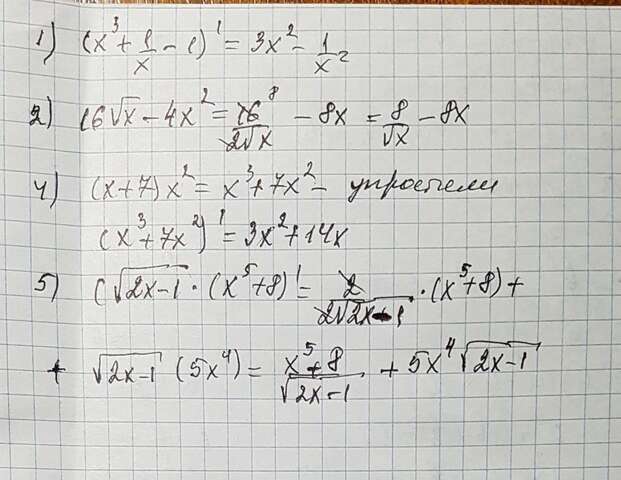 1) (x³ + 1/x - 1)' = 3x² - 1/x²
2) 16√x - 4x² = 16⁸/2√x - 8x = 8/√x - 8x
4) (x+7)x² = x³+7x² - упростили
(x³+7x²)' = 3x²+14x
5) (√2x-1 · (x⁵+8)' = 2/2√2x-1 · (x⁵+8) +
+ √2x-1 (5x⁴) = x⁵+8/√2x-1 + 5x⁴√2x-1